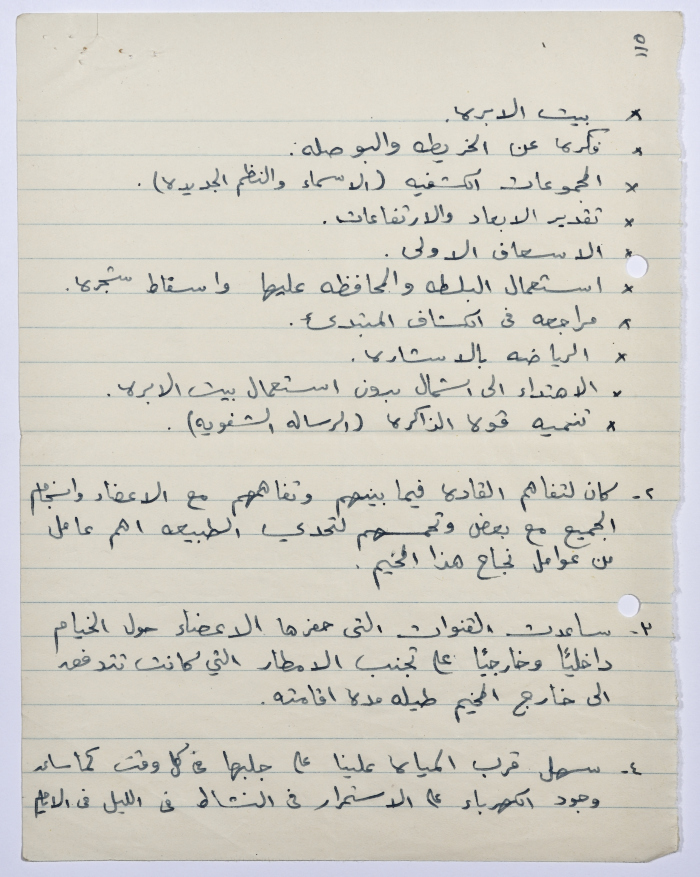 ٥١١
× بيت الابره.
× فكره عن الخريطه والبوصله.
× المجموعات الكشفيه (الاسماء والنظم الجديده).
× تقدير الابعاد والارتفاعات.
× الاسعاف الاولى.
× استعمال البلطه والمحافظه عليها واسقاط شجره.
× مراجعه فى الكشاف المبتدئ.
× الرياضه بالاشاره.
× الاهتداء الى الشمال بدون استعمال بيت الابره.
× تنميه قوه الذاكره (الرساله الشفويه).
٢- كان لتفاهم القاده فيما بينهم وتفاهمهم مع الاعضاء وانسجام
الجميع مع بعض وتحمسهم لتحدي الطبيعه اهم عامل
من عوامل نجاح هذا المخيم.
٣- ساعدت القنوات التى حفرها الاعضاء حول الخيام
داخليًا وخارجيًا على تجنب الامطار التي كانت تتدفق
الى خارج المخيم طيله مدة اقامته.
٤- سهل قرب المياه علينا على جلبها في كل وقت كما ساعد
وجود الكهرباء على الاستمرار فى النشاط فى الليل فى الايام